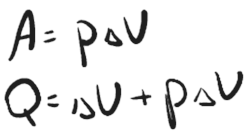 A = p△V
Q = △U + p△V